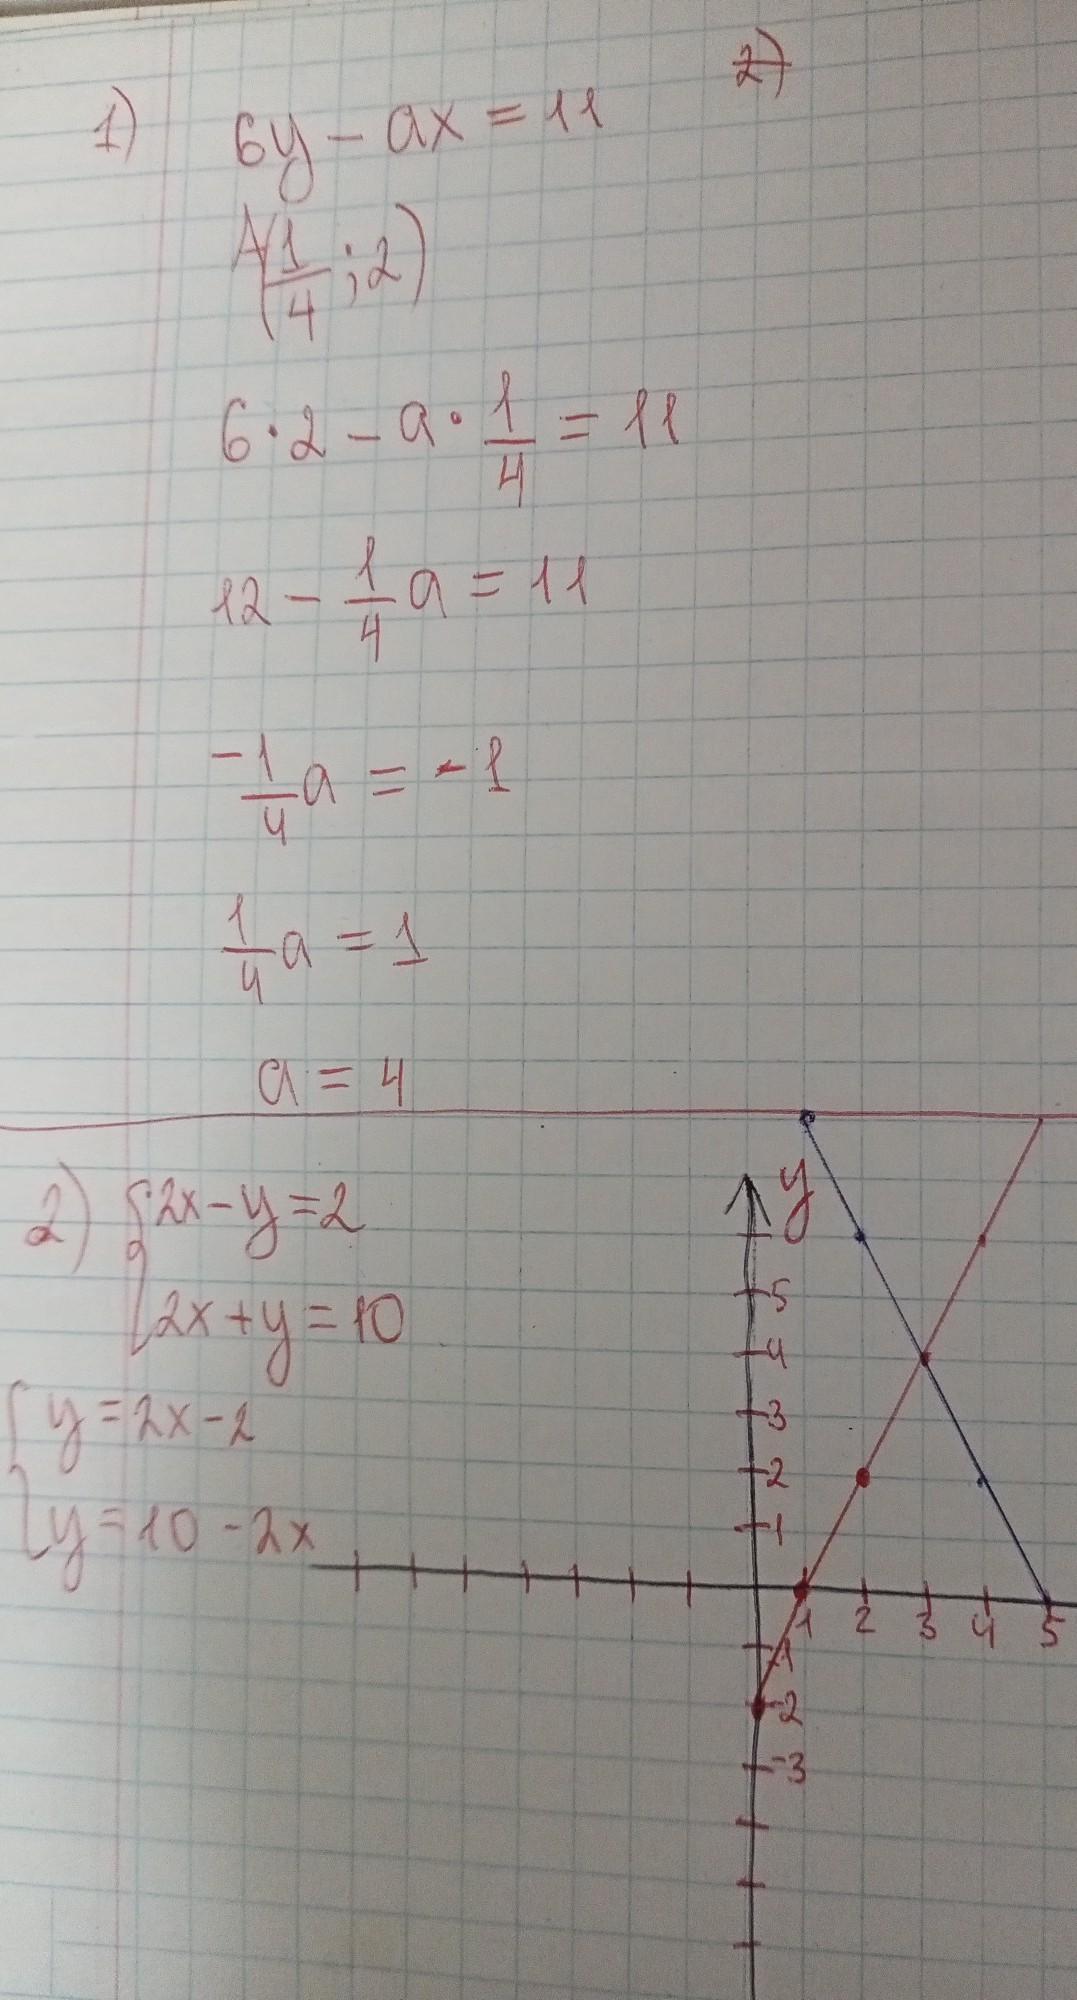 2)
1) 6y - ax = 11
A(1/4; 2)
6·2 - a·1/4 = 11
12 - 1/4a = 11
-1/4a = -1
1/4a = 1
a = 4
2) {2x - y = 2
2x + y = 10
{y = 2x - 2
y = 10 - 2x
y
5
4
3
2
1
1 2 3 4 5
-1
-2
-3